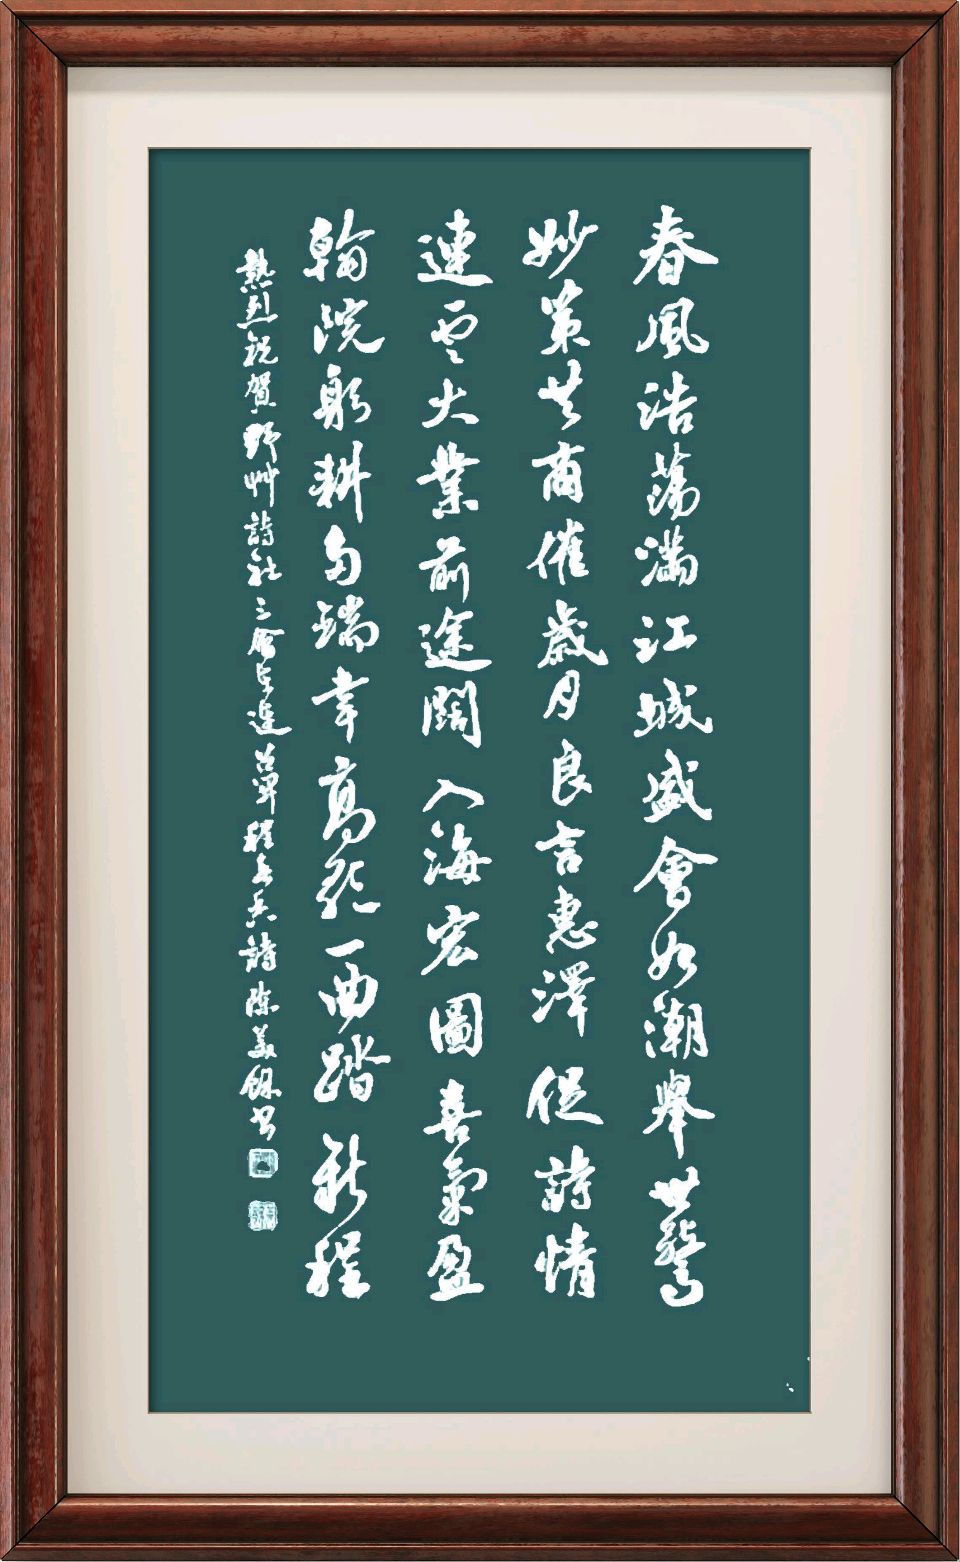 春風浩蕩滿江城盛會如潮舉世驚
妙策共商催歲月良言惠澤促詩情
連雲大業前途闊入海宏圖喜氣盈
翰院躬耕勾瑞章高歌一曲踏新程
熱烈祝賀野艸詩社三程詩陳美書